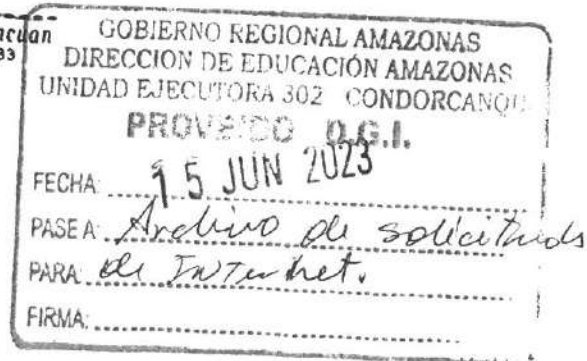 ncuan
83
GOBIERNO REGIONAL AMAZONAS
DIRECCION DE EDUCACIÓN AMAZONAS
UNIDAD EJECUTORA 302 CONDORCANQUI
PROVEIDO D.G.I.
FECHA: 15 JUN 2023
PASE A: Archivo de solicituds
PARA: de Internet.
FIRMA: